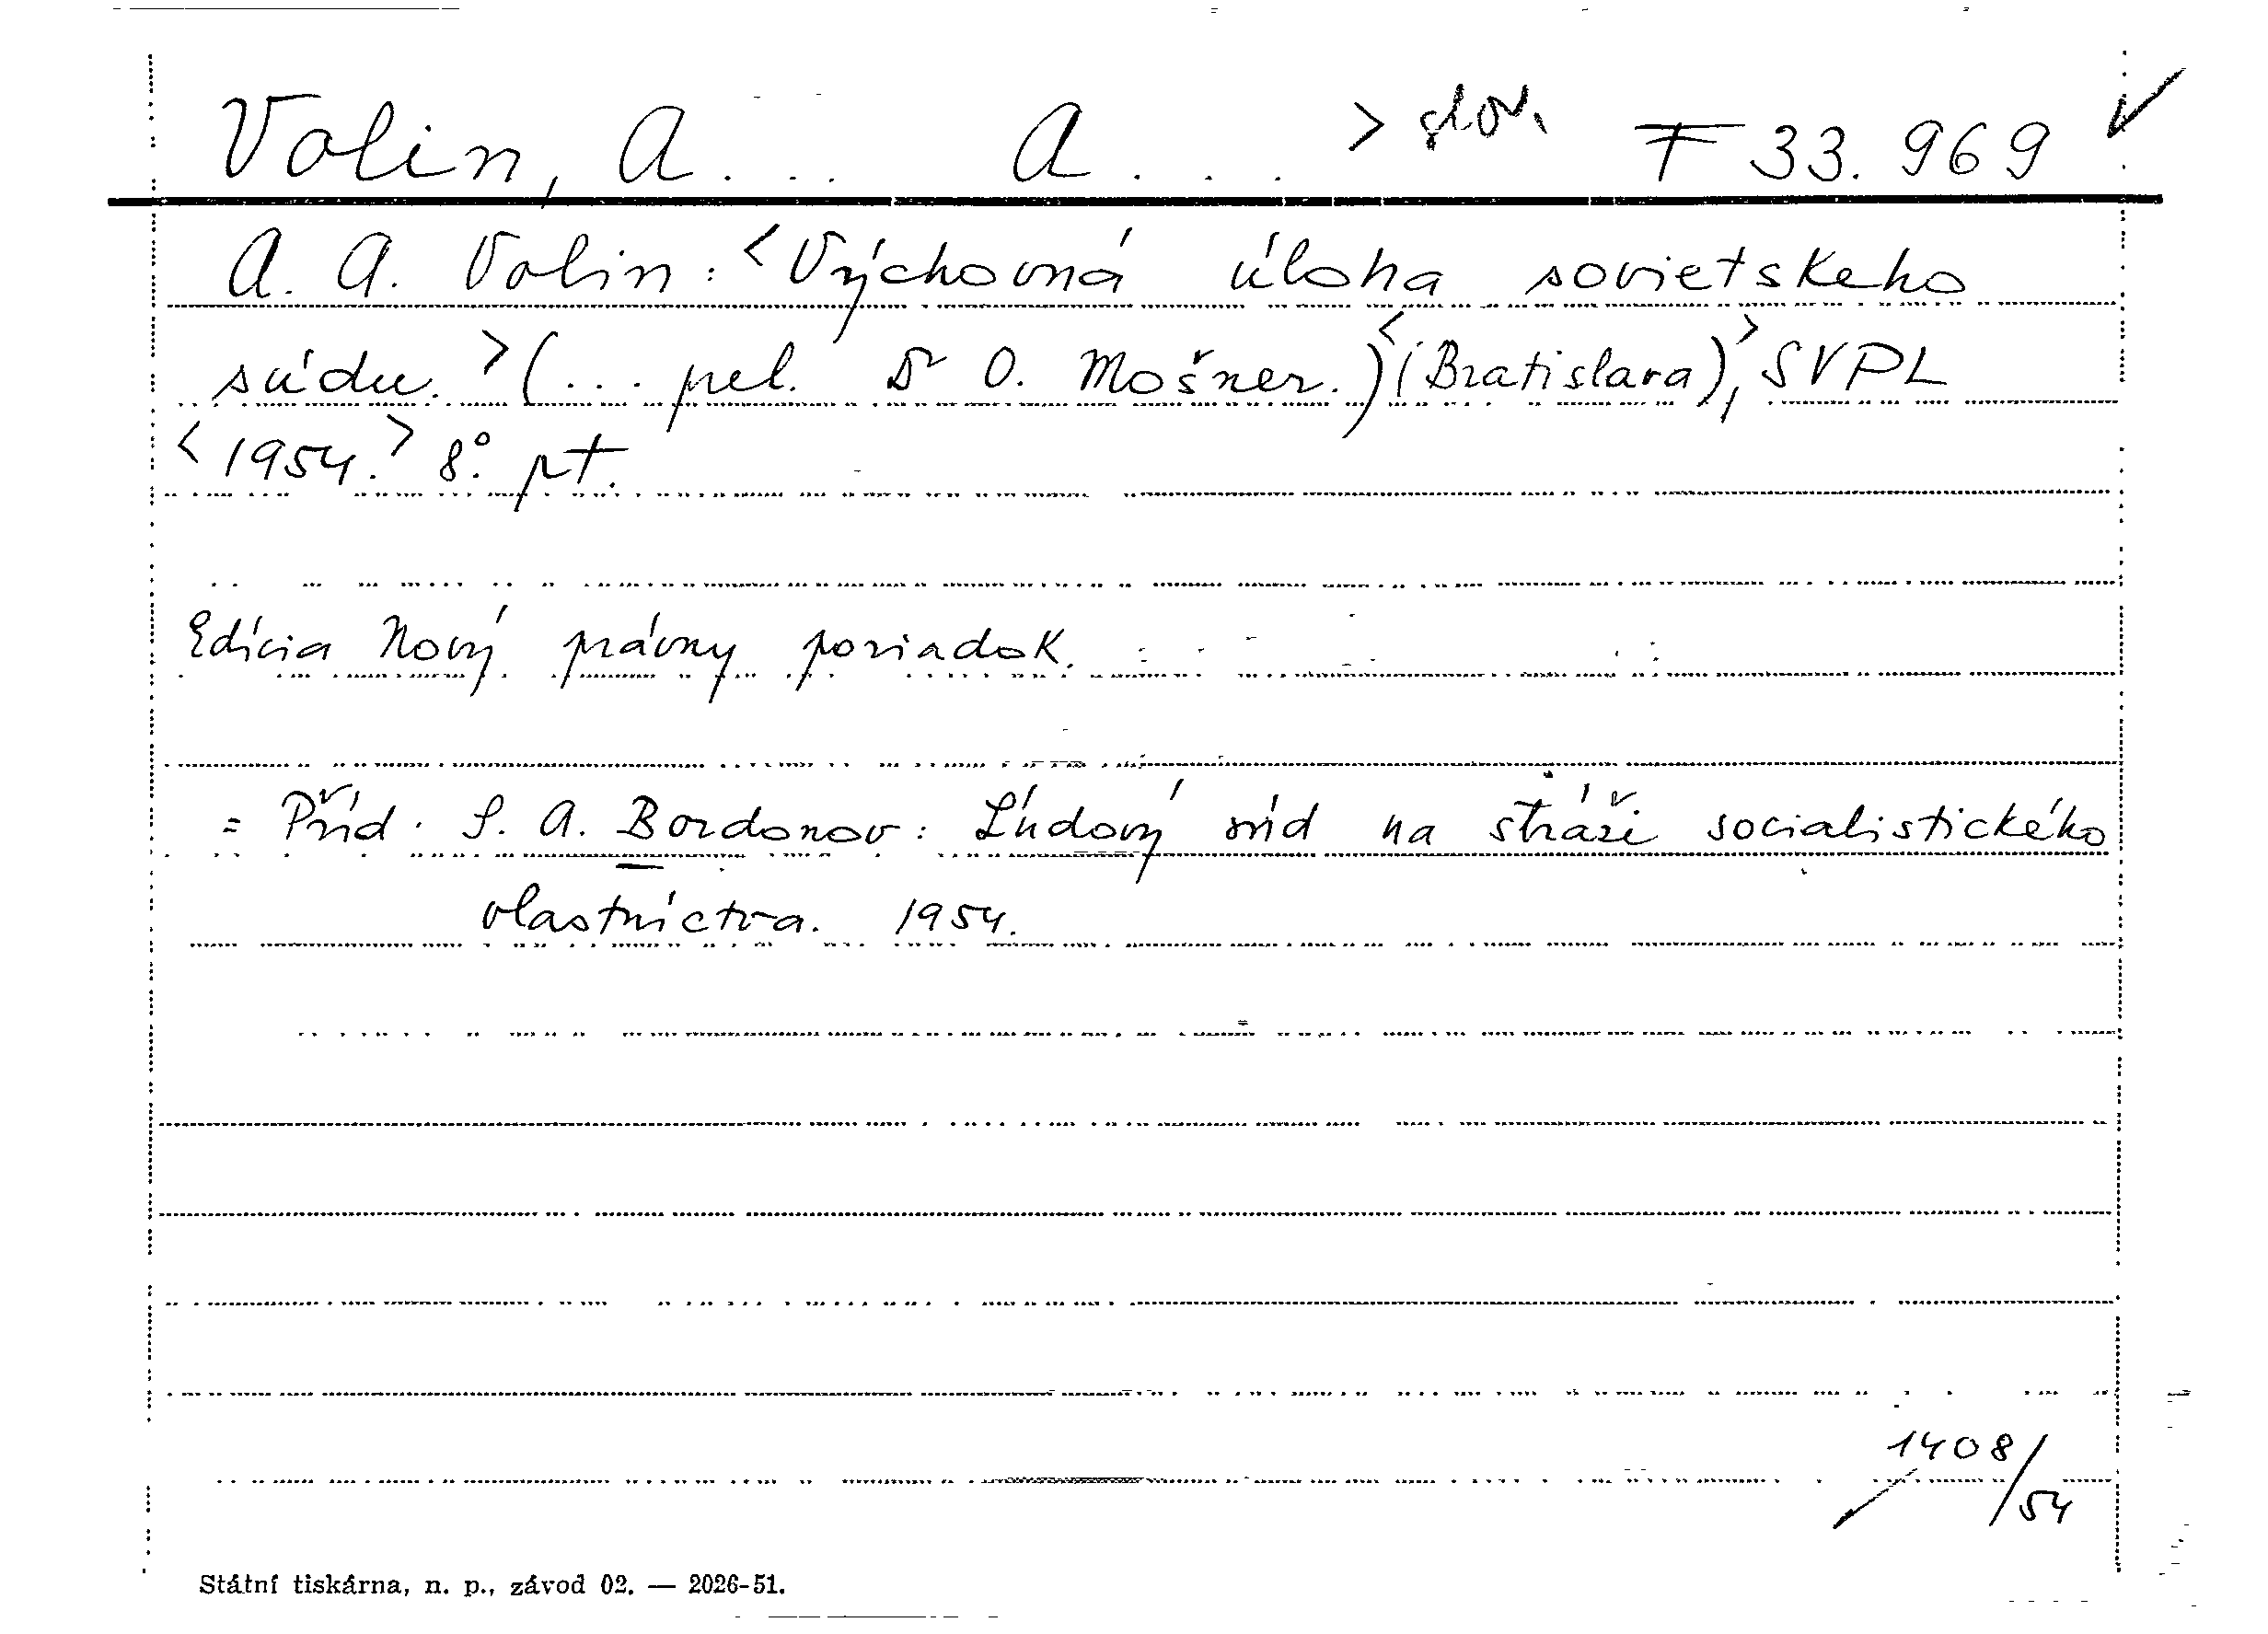 Volin, A... A... > slov. F 33.969 ✓
A. A. Volin: <Výchovná úloha sovietskeho
súdu.> (... prel. Dr O. Mošner.) <(Bratislava)>, SVPL
<1954.> 8°. pt.
Edícia Nový právny poriadok.
= Příd. S. A. Bordonov: Ľudový súd na stráži socialistického
vlastníctva. 1954.
1408/54
Státní tiskárna, n. p., závod 02. — 2026-51.